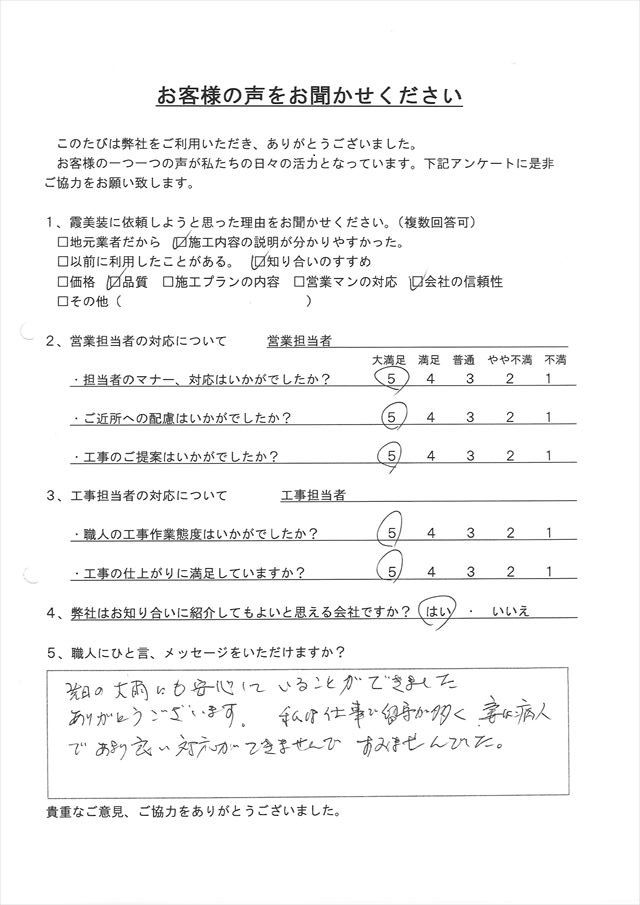 お客様の声をお聞かせください
このたびは弊社をご利用いただき、ありがとうございました。
お客様の一つ一つの声が私たちの日々の活力となっています。下記アンケートに是非
ご協力をお願い致します。
1、霞美装に依頼しようと思った理由をお聞かせください。（複数回答可）
□地元業者だから ☑施工内容の説明が分かりやすかった。
□以前に利用したことがある。 ☑知り合いのすすめ
□価格 ☑品質 □施工プランの内容 □営業マンの対応 ☑会社の信頼性
□その他（ ）
2、営業担当者の対応について 営業担当者
大満足 満足 普通 やや不満 不満
・担当者のマナー、対応はいかがでしたか？ 5 4 3 2 1
・ご近所への配慮はいかがでしたか？ 5 4 3 2 1
・工事のご提案はいかがでしたか？ 5 4 3 2 1
3、工事担当者の対応について 工事担当者
・職人の工事作業態度はいかがでしたか？ 5 4 3 2 1
・工事の仕上がりに満足していますか？ 5 4 3 2 1
4、弊社はお知り合いに紹介してもよいと思える会社ですか？ はい ・ いいえ
5、職人にひと言、メッセージをいただけますか？
先日の大雨にも安心していることができました
ありがとうございます。 私は仕事で留守が多く 妻は病人
であまり良い対応ができませんで すみませんでした。
貴重なご意見、ご協力をありがとうございました。